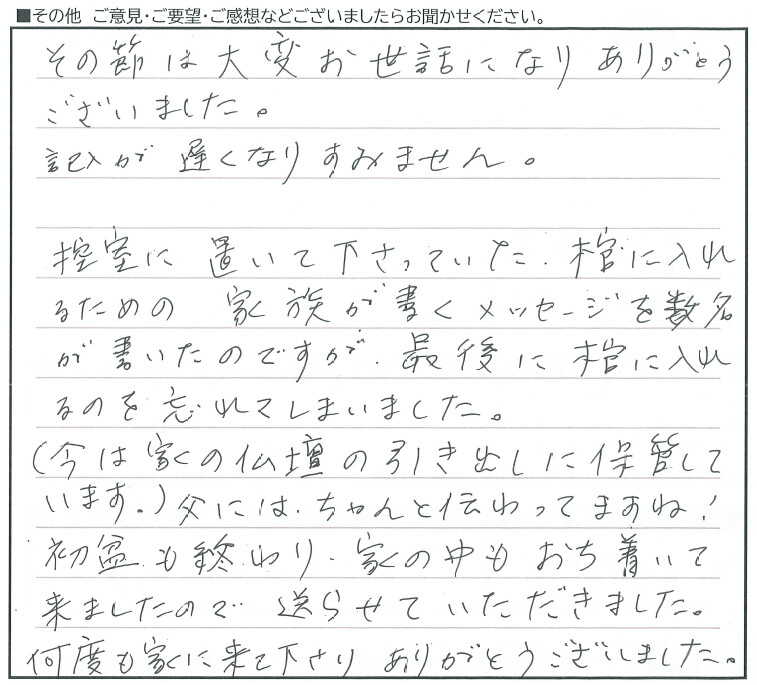 ■その他 ご意見・ご要望・ご感想などございましたらお聞かせください。
その節は大変お世話になり ありがとう
ございました。
記入が 遅くなりすみません。
控室に 置いて下さっていた、棺に入れ
るための 家族が書くメッセージを数名
が書いたのですが、最後に 棺に入れ
るのを忘れてしまいました。
(今は家の仏壇の引き出しに保管して
います。)父には、ちゃんと伝わってますね!
初盆も終わり、家の中もおち着いて
来ましたので 送らせていただきました。
何度も家に来て下さり ありがとうございました。